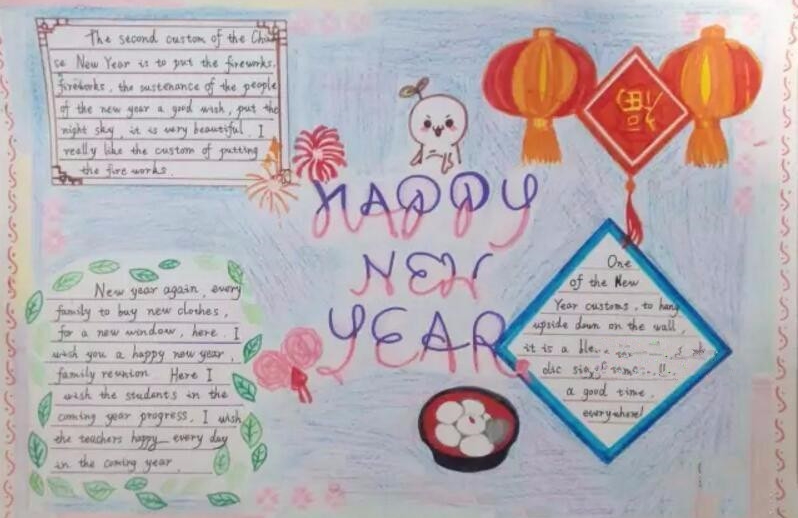 The second custom of the Chine
se New Year is to put the fireworks.
fireworks, the sustenance of the people
of the new year a good wish, put the
night sky, it is very beautiful. I
really like the custom of putting
the fire works.
福
HAPPY
NEW
YEAR
New year again, every
family to buy new clothes,
for a new window, here, I
wish you a happy new year,
family reunion. Here I
wish the students in the
coming year progress, I wish
the teachers happy every day
in the coming year
One
of the New
Year customs, to hang
upside down on the wall,
it is a
olic
a good time,
everywhere!